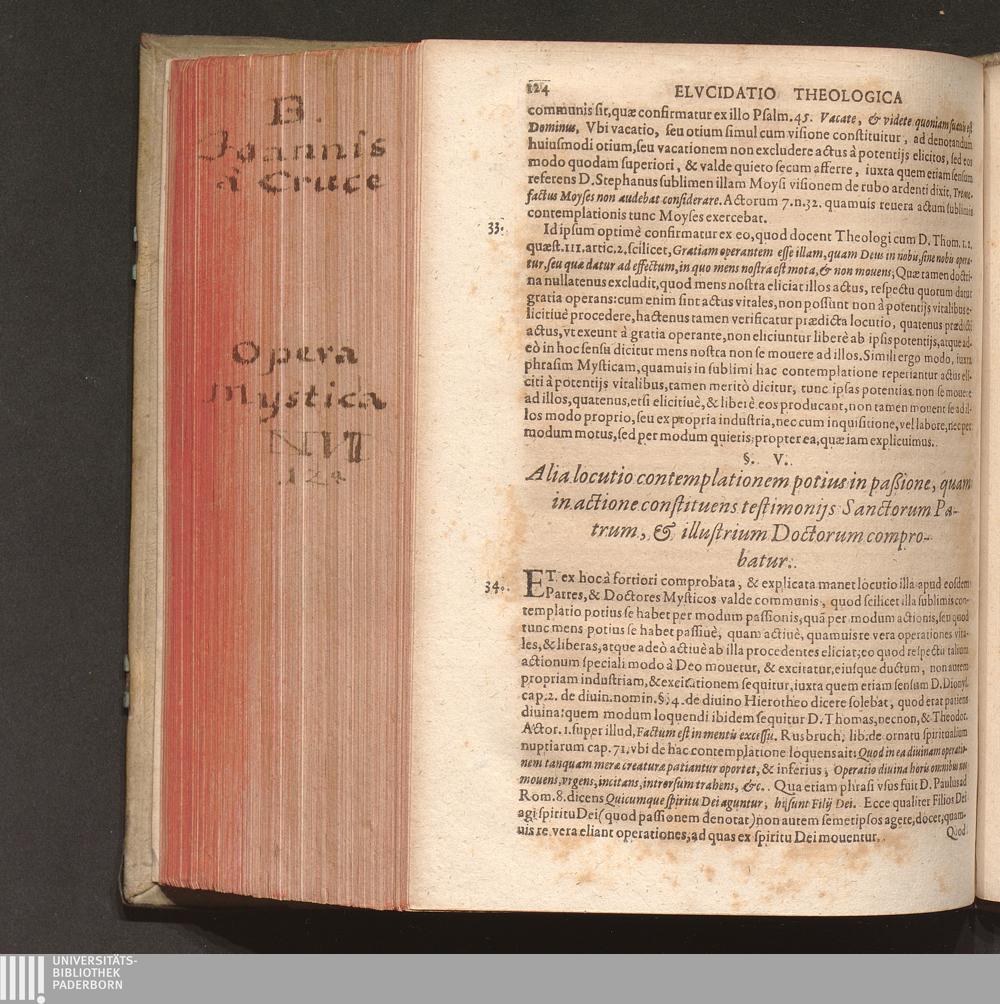 B.
Joannis
à Cruce
Opera
Mystica
NVI
124
124 ELVCIDATIO THEOLOGICA
communis sit, quæ confirmatur ex illo Psalm. 45. Vacate, & videte quoniam suavis est
Dominus, Vbi vacatio, seu otium simul cum visione constituitur, ad denotandum
huiusmodi otium, seu vacationem non excludere actus à potentijs elicitos, sed eos
modo quodam superiori, & valde quieto secum afferre, iuxta quem etiam sensum
referens D. Stephanus sublimem illam Moysi visionem de rubo ardenti dixit, Treme-
factus Moyses non audebat considerare. Actorum 7. n. 32. quamuis reuera actum sublimis
contemplationis tunc Moyses exercebat.
33. Id ipsum optimè confirmatur ex eo, quod docent Theologi cum D. Thom. 1.2.
quæst. 111. artic. 2. scilicet, Gratiam operantem esse illam, quam Deus in nobis, sine nobis opera-
tur, seu quæ datur ad effectum, in quo mens nostra est mota, & non mouens; Quæ tamen doctri-
na nullatenus excludit, quod mens nostra eliciat illos actus, respectu quorum datur
gratia operans: cum enim sint actus vitales, non possunt non à potentijs vitalibus e-
licitiuè procedere, hactenus tamen verificatur prædicta locutio, quatenus prædicti
actus, vt exeunt à gratia operante, non eliciuntur liberè ab ipsis potentijs, atque ad-
eò in hoc sensu dicitur mens nostra non se mouere ad illos. Simili ergo modo, iuxta
phrasim Mysticam, quamuis in sublimi hac contemplatione reperiantur actus eli-
citi à potentijs vitalibus, tamen meritò dicitur, tunc ipsas potentias non se mouere
ad illos, quatenus, etsi elicitiuè, & liberè eos producant, non tamen mouent se ad il-
los modo proprio, seu ex propria industria, nec cum inquisitione, vel labore, nec per
modum motus, sed per modum quietis; propter ea, quæ iam explicuimus.
§. V.
Alia locutio contemplationem potius in passione, quam
in actione constituens testimonijs Sanctorum Pa-
trum, & illustrium Doctorum compro-
batur.
34. ET ex hoc à fortiori comprobata, & explicata manet locutio illa apud eosdem
Patres, & Doctores Mysticos valde communis, quod scilicet illa sublimis con-
templatio potius se habet per modum passionis, quã per modum actionis, seu quod
tunc mens potius se habet passiuè, quam actiuè, quamuis re vera operationes vita-
les, & liberas, atque adeò actiuè ab illa procedentes eliciat; eo quod respectu talium
actionum speciali modo à Deo mouetur, & excitatur, eiusque ductum, non autem
propriam industriam, & excitationem sequitur, iuxta quem etiam sensum D. Dionys.
cap. 2. de diuin. nomin. §. 4. de diuino Hierotheo dicere solebat, quod erat patiens
diuina: quem modum loquendi ibidem sequitur D. Thomas, necnon, & Theodor.
Actor. 1. super illud, Factum est in mentis excessu. Rusbruch, lib. de ornatu spiritualium
nuptiarum cap. 71. vbi de hac contemplatione loquens ait: Quod in ea diuinam operatio-
nem tanquam meræ creaturæ patiantur oportet, & inferius; Operatio diuina horis omnibus nos
mouens, vrgens, incitans, introrsum trahens, &c. Qua etiam phrasi vsus fuit D. Paulus ad
Rom. 8. dicens Quicumque spiritu Dei aguntur, hij sunt Filij Dei. Ecce qualiter Filios Dei
agi spiritu Dei (quod passionem denotat) non autem semetipsos agere, docet, quam-
uis re vera eliant operationes, ad quas ex spiritu Dei mouentur.
Quod
UNIVERSITÄTS-
BIBLIOTHEK
PADERBORN